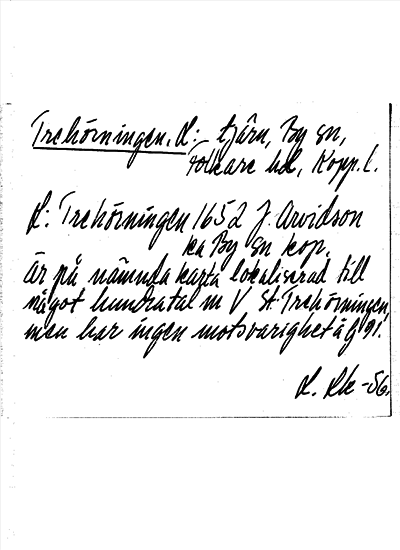 Trehörningen, L: tjärn, By sn,
Folkare hd, Kopp. l.
L: Trehörningen 1652 J. Arvidson
ka By sn kop.
Är på nämnda karta lokaliserad till
något hundratal m V St. Trehörningen,
men har ingen motsvarighet å G 91.
L. Rk -56.